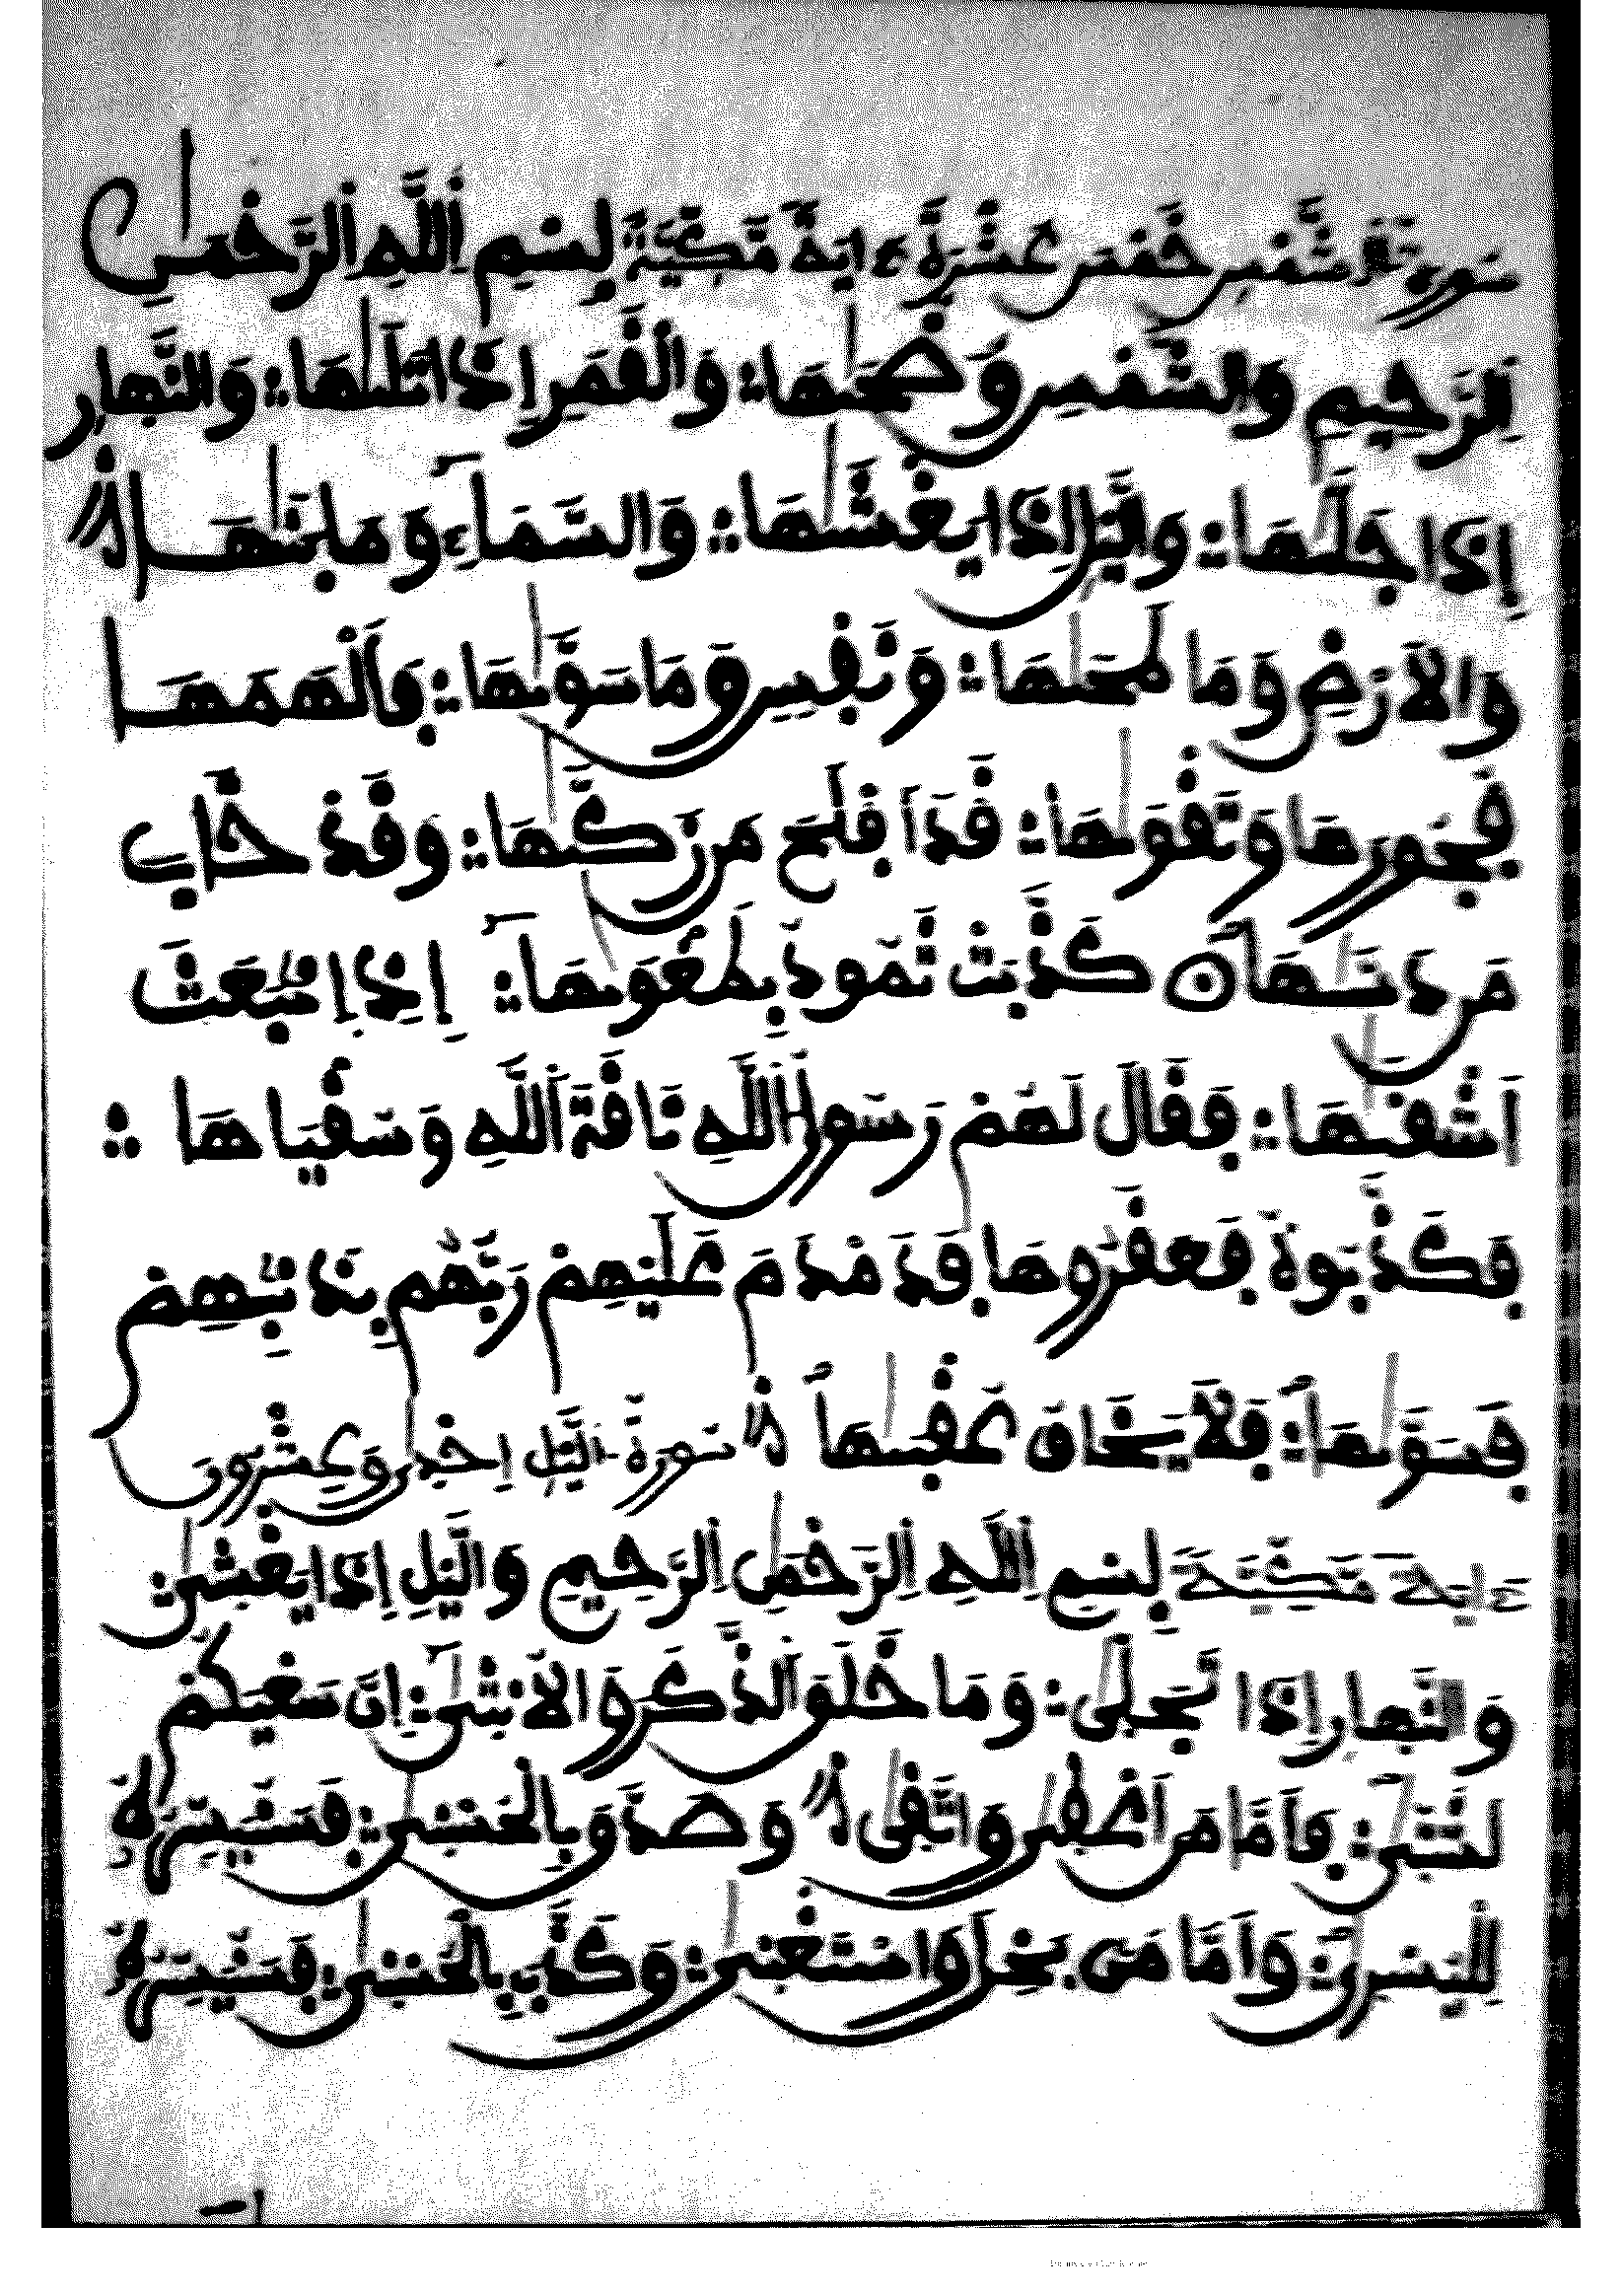 سُورَةُ شَّمْسِ خَمْسَ عَشْرَةَ ءَايَةً مَكِّيَّةٌ بِسْمِ اِ۬للَّهِ اِ۬لرَّحْمَٰنِ
اِ۬لرَّحِيمِ وَالشَّمْسِ وَضُحَىٰهَا وَالْقَمَرِ إِذَا تَلَىٰهَا وَالنَّهَارِ
إِذَا جَلَّىٰهَا وَاليْلِ إِذَا يَغْشَىٰهَا وَالسَّمَآءِ وَمَا بَنَىٰهَا
وَالَارْضِ وَمَا طَحَىٰهَا وَنَفْسٍ وَمَا سَوَّىٰهَا فَأَلْهَمَهَا
فُجُورَهَا وَتَقْوَىٰهَا قَدَ اَفْلَحَ مَن زَكَّىٰهَا وَقَدْ خَابَ
مَن دَسَّىٰهَا كَذَّبَتْ ثَمُودُ بِطَغْوَىٰهَآ إِذِ اِ۟نۢبَعَثَ
أَشْقَىٰهَا فَقَالَ لَهُمْ رَسُولُ اُ۬للَّهِ نَاقَةَ اَ۬للَّهِ وَسُقْيَاهَا
فَكَذَّبُوهُ فَعَقَرُوهَا فَدَمْدَمَ عَلَيْهِمْ رَبُّهُم بِذَنۢبِهِمْ
فَسَوَّىٰهَا فَلَا يَخَافُ عُقْبَىٰهَا سُورَةُ اليْلِ إِحْدَى وَعِشْرُونَ
ءَايَةً مَكِّيَّةٌ بِسْمِ اِ۬للَّهِ اِ۬لرَّحْمَٰنِ اِ۬لرَّحِيمِ وَاليْلِ إِذَا يَغْشَىٰ
وَالنَّهَارِ إِذَا تَجَلَّىٰ وَمَا خَلَقَ اَ۬لذَّكَرَ وَالُانثَىٰٓ إِنَّ سَعْيَكُمْ
لَشَتَّىٰ فَأَمَّا مَنَ اَعْطَىٰ وَاتَّقَىٰ وَصَدَّقَ بِالْحُسْنَىٰ فَسَنُيَسِّرُهُۥ
لِلْيُسْرَىٰ وَأَمَّا مَنۢ بَخِلَ وَاسْتَغْنَىٰ وَكَذَّبَ بِالْحُسْنَىٰ فَسَنُيَسِّرُهُۥ